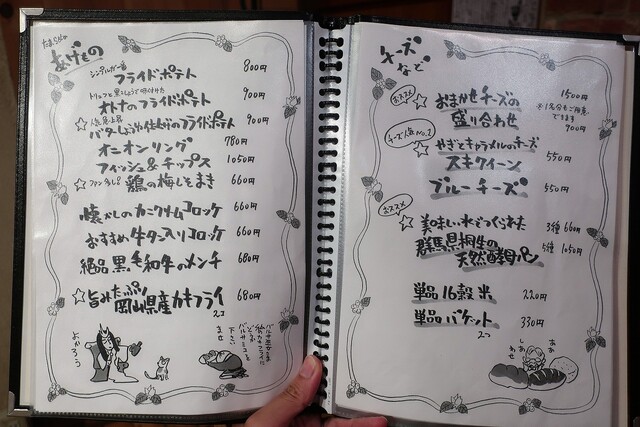 たまらんの
あげもの
シンプルが一番
フライドポテト 800円
トリュフと黒こしょうで味付けた
オトナのフライドポテト 900円
☆人気上昇
バターしょうゆ仕上げのフライドポテト 900円
オニオンリング 780円
フィッシュ&チップス 1050円
☆ファン多し!!
鶏の梅しそまき 660円
懐かしのカニクリームコロッケ 660円
おすすめ牛タン入りコロッケ 660円
絶品黒毛和牛のメンチ 680円
☆旨みたっぷり
岡山県産カキフライ 680円
2コ
よかろう
チーズ
など
オススメ
☆おまかせチーズの
盛り合わせ 1500円
※1名分もご用意
できます
900円
チーズ人気No.1
☆やぎとキャラメルのチーズ
スキクイーン 550円
ブルーチーズ 550円
オススメ
☆美味しい水でつくられた
群馬県桐生の
天然酵母パン
3種 660円
5種 1050円
単品 16穀米 220円
単品 バケット 330円
2つ
ああ
しあわせ